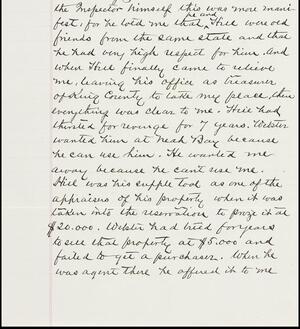 the Inspector himself this was more mani-
fest, for he told me that he and Hill were old
friends from the same state and that
he had very high respect for him. And
when Hill finally came to relieve
me, leaving his office as treasurer
of King County to take my place, then
everything was clear to me. Hill had
thirsted for revenge for 7 years. Webster
wanted him at Neah Bay because
he can use him. He wanted me
away because he can't use me.
Hill was his supple tool as one of the
appraisers of his property when it was
taken into the reservation to prize it at
$20.000. Webster had tried for years
to sell that property at $5.000 and
failed to get a purchaser. When he
was agent there he offered it to me